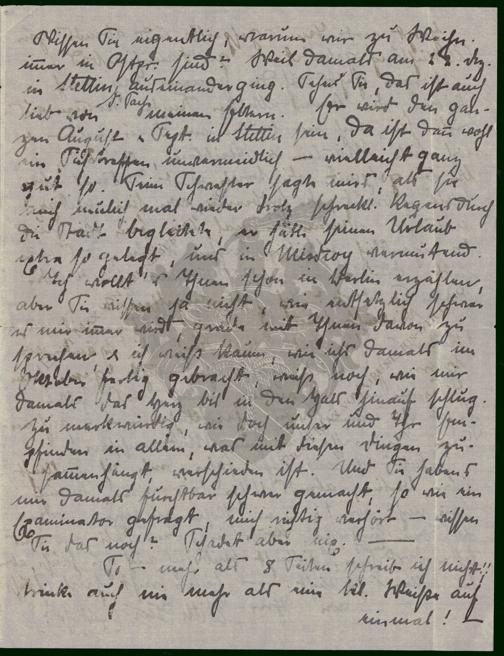 Wissen Sie eigentlich, warum wir zu Weihn.
immer in Ostpr. sind? Weil damals am 22. Dez.
in Stettin auseinanderging. Sehn Sie, das ist auch
lieb von meinen Eltern. Er wird den gan-
zen August u. Sept. in Stettin sein, da ist dann wohl
ein Sichtreffen unvermeidlich – vielleicht ganz
gut so. Seine Schwester sagte mirs, als sie
mich neulich mal wieder trotz schreckl. Regens durch
die Stadt begleitete, er hätte seinen Urlaub
extra so gelegt, und in Misdroy vermutend.
Ich wollt's Ihnen schon in Berlin erzählen,
aber Sie wissen ja nicht, wie entsetzlich schwer
es mir immer wird, grade mit Ihnen davon zu
sprechen u. ich weiß kaum, wie ichs damals im
fertig gebracht, weiß noch, wie mir
damals das Herz bis in den Hals hinauf schlug.
Zu merkwürdig, wie doch unser und Ihr Em-
pfinden in allem, was mit diesen Dingen zu-
sammenhängt, verschieden ist. Und Sie habens
mir damals furchtbar schwer gemacht, so wie ein
Examinator gefragt, mich richtig verhört – wissen
Sie das noch? Schadet aber nix. —
So – mehr als 8 Seiten schreib ich nicht!!
trinke auch nie mehr als eine Weiße auf
einmal! —